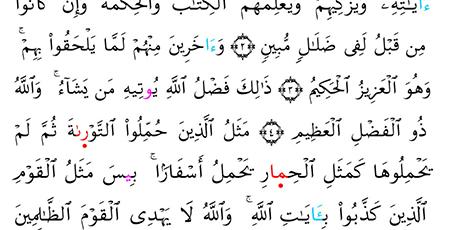 ءَايَٰتِهِۦ وَيُزَكِّيهِمْ وَيُعَلِّمُهُمُ ٱلْكِتَٰبَ وَٱلْحِكْمَةَ وَإِن كَانُوا۟
مِن قَبْلُ لَفِى ضَلَٰلٍ مُّبِينٍ ۝٢ وَءَاخَرِينَ مِنْهُمْ لَمَّا يَلْحَقُوا۟ بِهِمْ ۚ
وَهُوَ ٱلْعَزِيزُ ٱلْحَكِيمُ ۝٣ ذَٰلِكَ فَضْلُ ٱللَّهِ يُوتِيهِ مَن يَشَآءُ ۚ وَٱللَّهُ
ذُو ٱلْفَضْلِ ٱلْعَظِيمِ ۝٤ مَثَلُ ٱلَّذِينَ حُمِّلُوا۟ ٱلتَّوْرىٰةَ ثُمَّ لَمْ
يَحْمِلُوهَا كَمَثَلِ ٱلْحِمارِ يَحْمِلُ أَسْفَارًۢا ۚ بِيسَ مَثَلُ ٱلْقَوْمِ
ٱلَّذِينَ كَذَّبُوا۟ بِـَٔايَٰتِ ٱللَّهِ ۚ وَٱللَّهُ لَا يَهْدِى ٱلْقَوْمَ ٱلظَّٰلِمِينَ